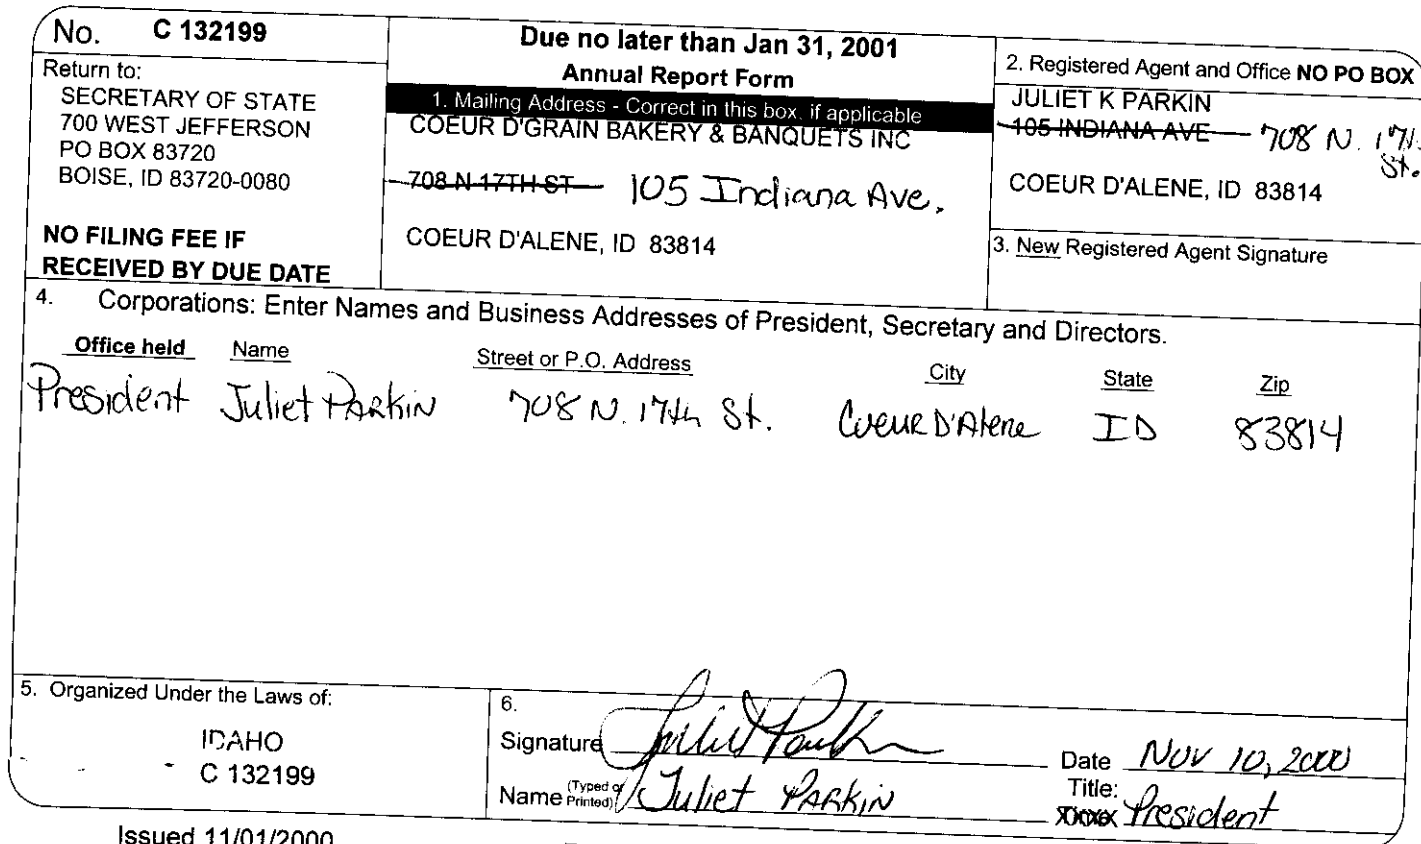 No. C 132199
Return to:
SECRETARY OF STATE
700 WEST JEFFERSON
PO BOX 83720
BOISE, ID 83720-0080
NO FILING FEE IF
RECEIVED BY DUE DATE
Due no later than Jan 31, 2001
Annual Report Form
1. Mailing Address - Correct in this box, if applicable
COEUR D'GRAIN BAKERY & BANQUETS INC
708 N 17TH ST 105 Indiana Ave.
COEUR D'ALENE, ID 83814
2. Registered Agent and Office NO PO BOX
JULIET K PARKIN
105 INDIANA AVE 708 N. 17th
St.
COEUR D'ALENE, ID 83814
3. New Registered Agent Signature
4. Corporations: Enter Names and Business Addresses of President, Secretary and Directors.
Office held Name Street or P.O. Address City State Zip
President Juliet PARKIN 708 N. 17th St. Coeur D'Alene ID 83814
5. Organized Under the Laws of:
IDAHO
C 132199
6.
Signature Juliet Parkin Date Nov 10, 2000
Name (Typed or Printed) Juliet PARKIN Title: President
Issued 11/01/2000